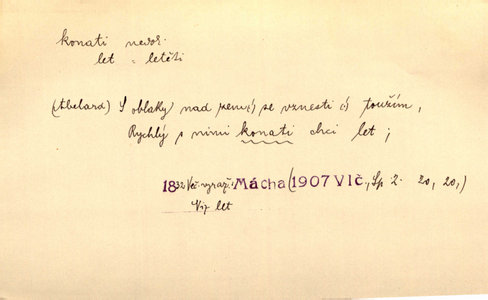 konati nedok.
let = letěti
(Abelard) S oblaky nad zemi se vznesti toužím,
Rychlý s nimi konati chci let;
1832 Več. vyraz. Mácha (1907 Vlč., Sp 2. 20, 20,)
Viz let